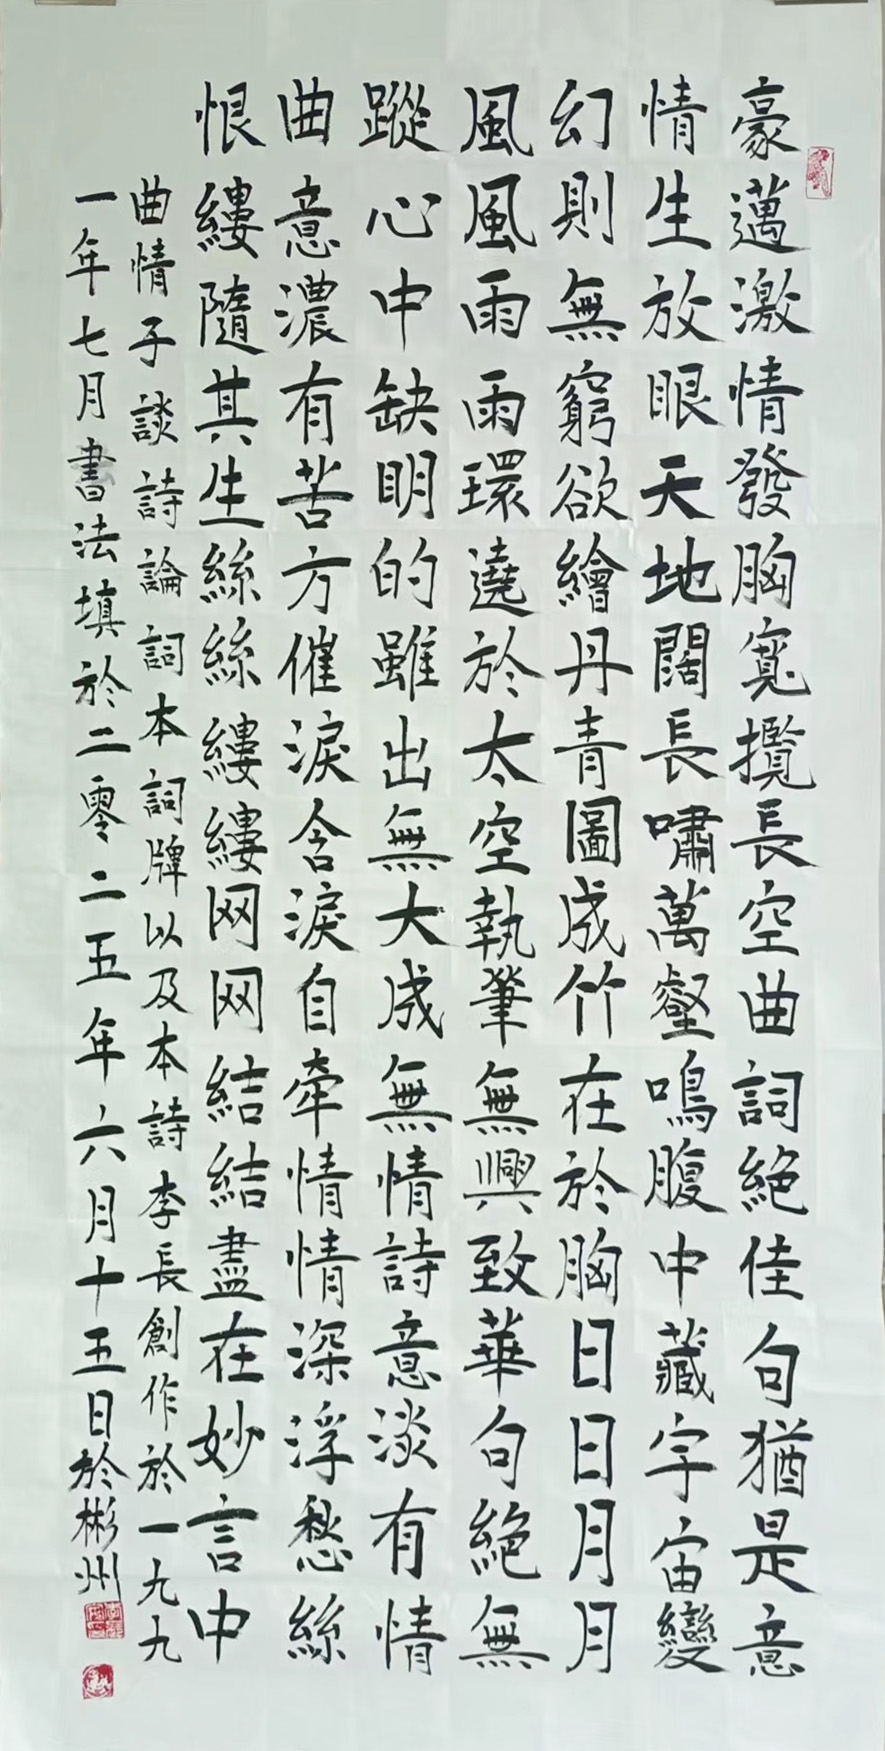 豪邁激情發胸寬攬長空曲詞絕佳句猶是意
情生放眼天地闊長嘯萬壑鳴腹中藏宇宙變
幻則無窮欲繪丹青圖成竹在於胸日日月月
風風雨雨環遶於太空執筆無興致華句絕無
蹤心中缺明的雖出無大成無情詩意淡有情
曲意濃有苦方催淚含淚自牽情情深浮愁絲
恨縷隨其生絲絲縷縷网网結結盡在妙言中
曲情子談詩論詞本詞牌以及本詩李長創作於一九九
一年七月書法填於二零二五年六月十五日於彬州